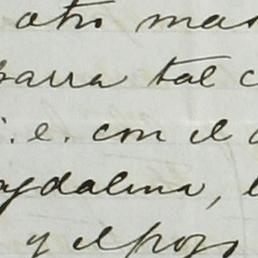 otro mas
barra tal c
i. e. con el
agdalena, l
y el pozo